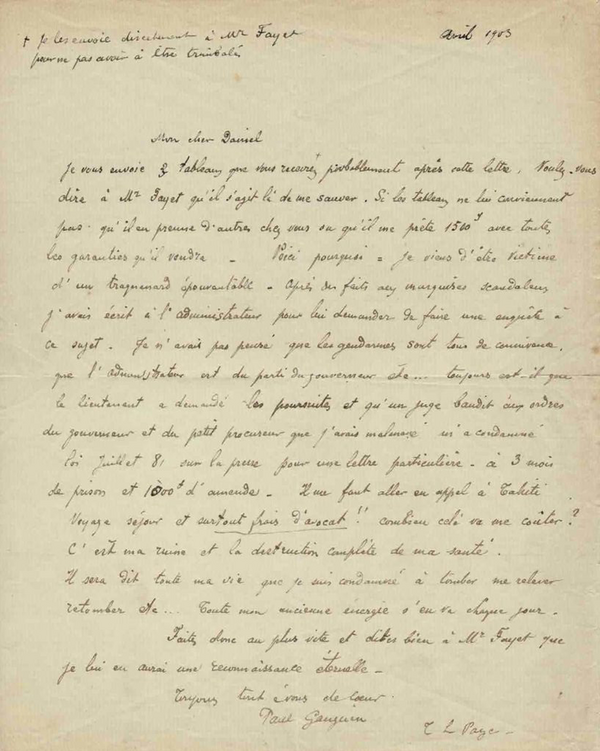 + Je les envoie directement à Mr Fayet
pour ne pas avoir à être trimbalés
Avril 1903
Mon cher Daniel
Je vous envoie 3 tableaux que vous recevrez probablement après cette lettre. Voulez-vous
dire à Mr Fayet qu'il s'agit là de me sauver. Si les tableaux ne lui conviennent
pas qu'il en prenne d'autres chez vous ou qu'il me prête 1500f avec toutes
les garanties qu'il voudra - Voici pourquoi = Je viens d'être victime
d'un traquenard épouvantable - Après des faits aux marquises scandaleux
j'avais écrit à l'administrateur pour lui demander de faire une enquête à
ce sujet. Je n'avais pas pensé que les gendarmes sont tous de connivence,
que l'administrateur est du parti du gouverneur etc... toujours est-il que
le lieutenant a demandé les poursuites et qu'un juge bandit aux ordres
du gouverneur et du petit procureur que j'avais malmené m'a condamné
loi Juillet 81 sur la presse pour une lettre particulière - à 3 mois
de prison et 1000f d'amende - Il me faut aller en appel à Tahiti
Voyage séjour et surtout frais d'avocat!! combien celà va me coûter?
C'est ma ruine et la destruction complète de ma santé.
Il sera dit toute ma vie que je suis condamné à tomber me relever
retomber etc... Toute mon ancienne énergie s'en va chaque jour.
Faites donc au plus vite et dites bien à Mr Fayet que
je lui en aurai une reconnaissance éternelle -
Toujours tout à vous de cœur.
Paul Gauguin
T